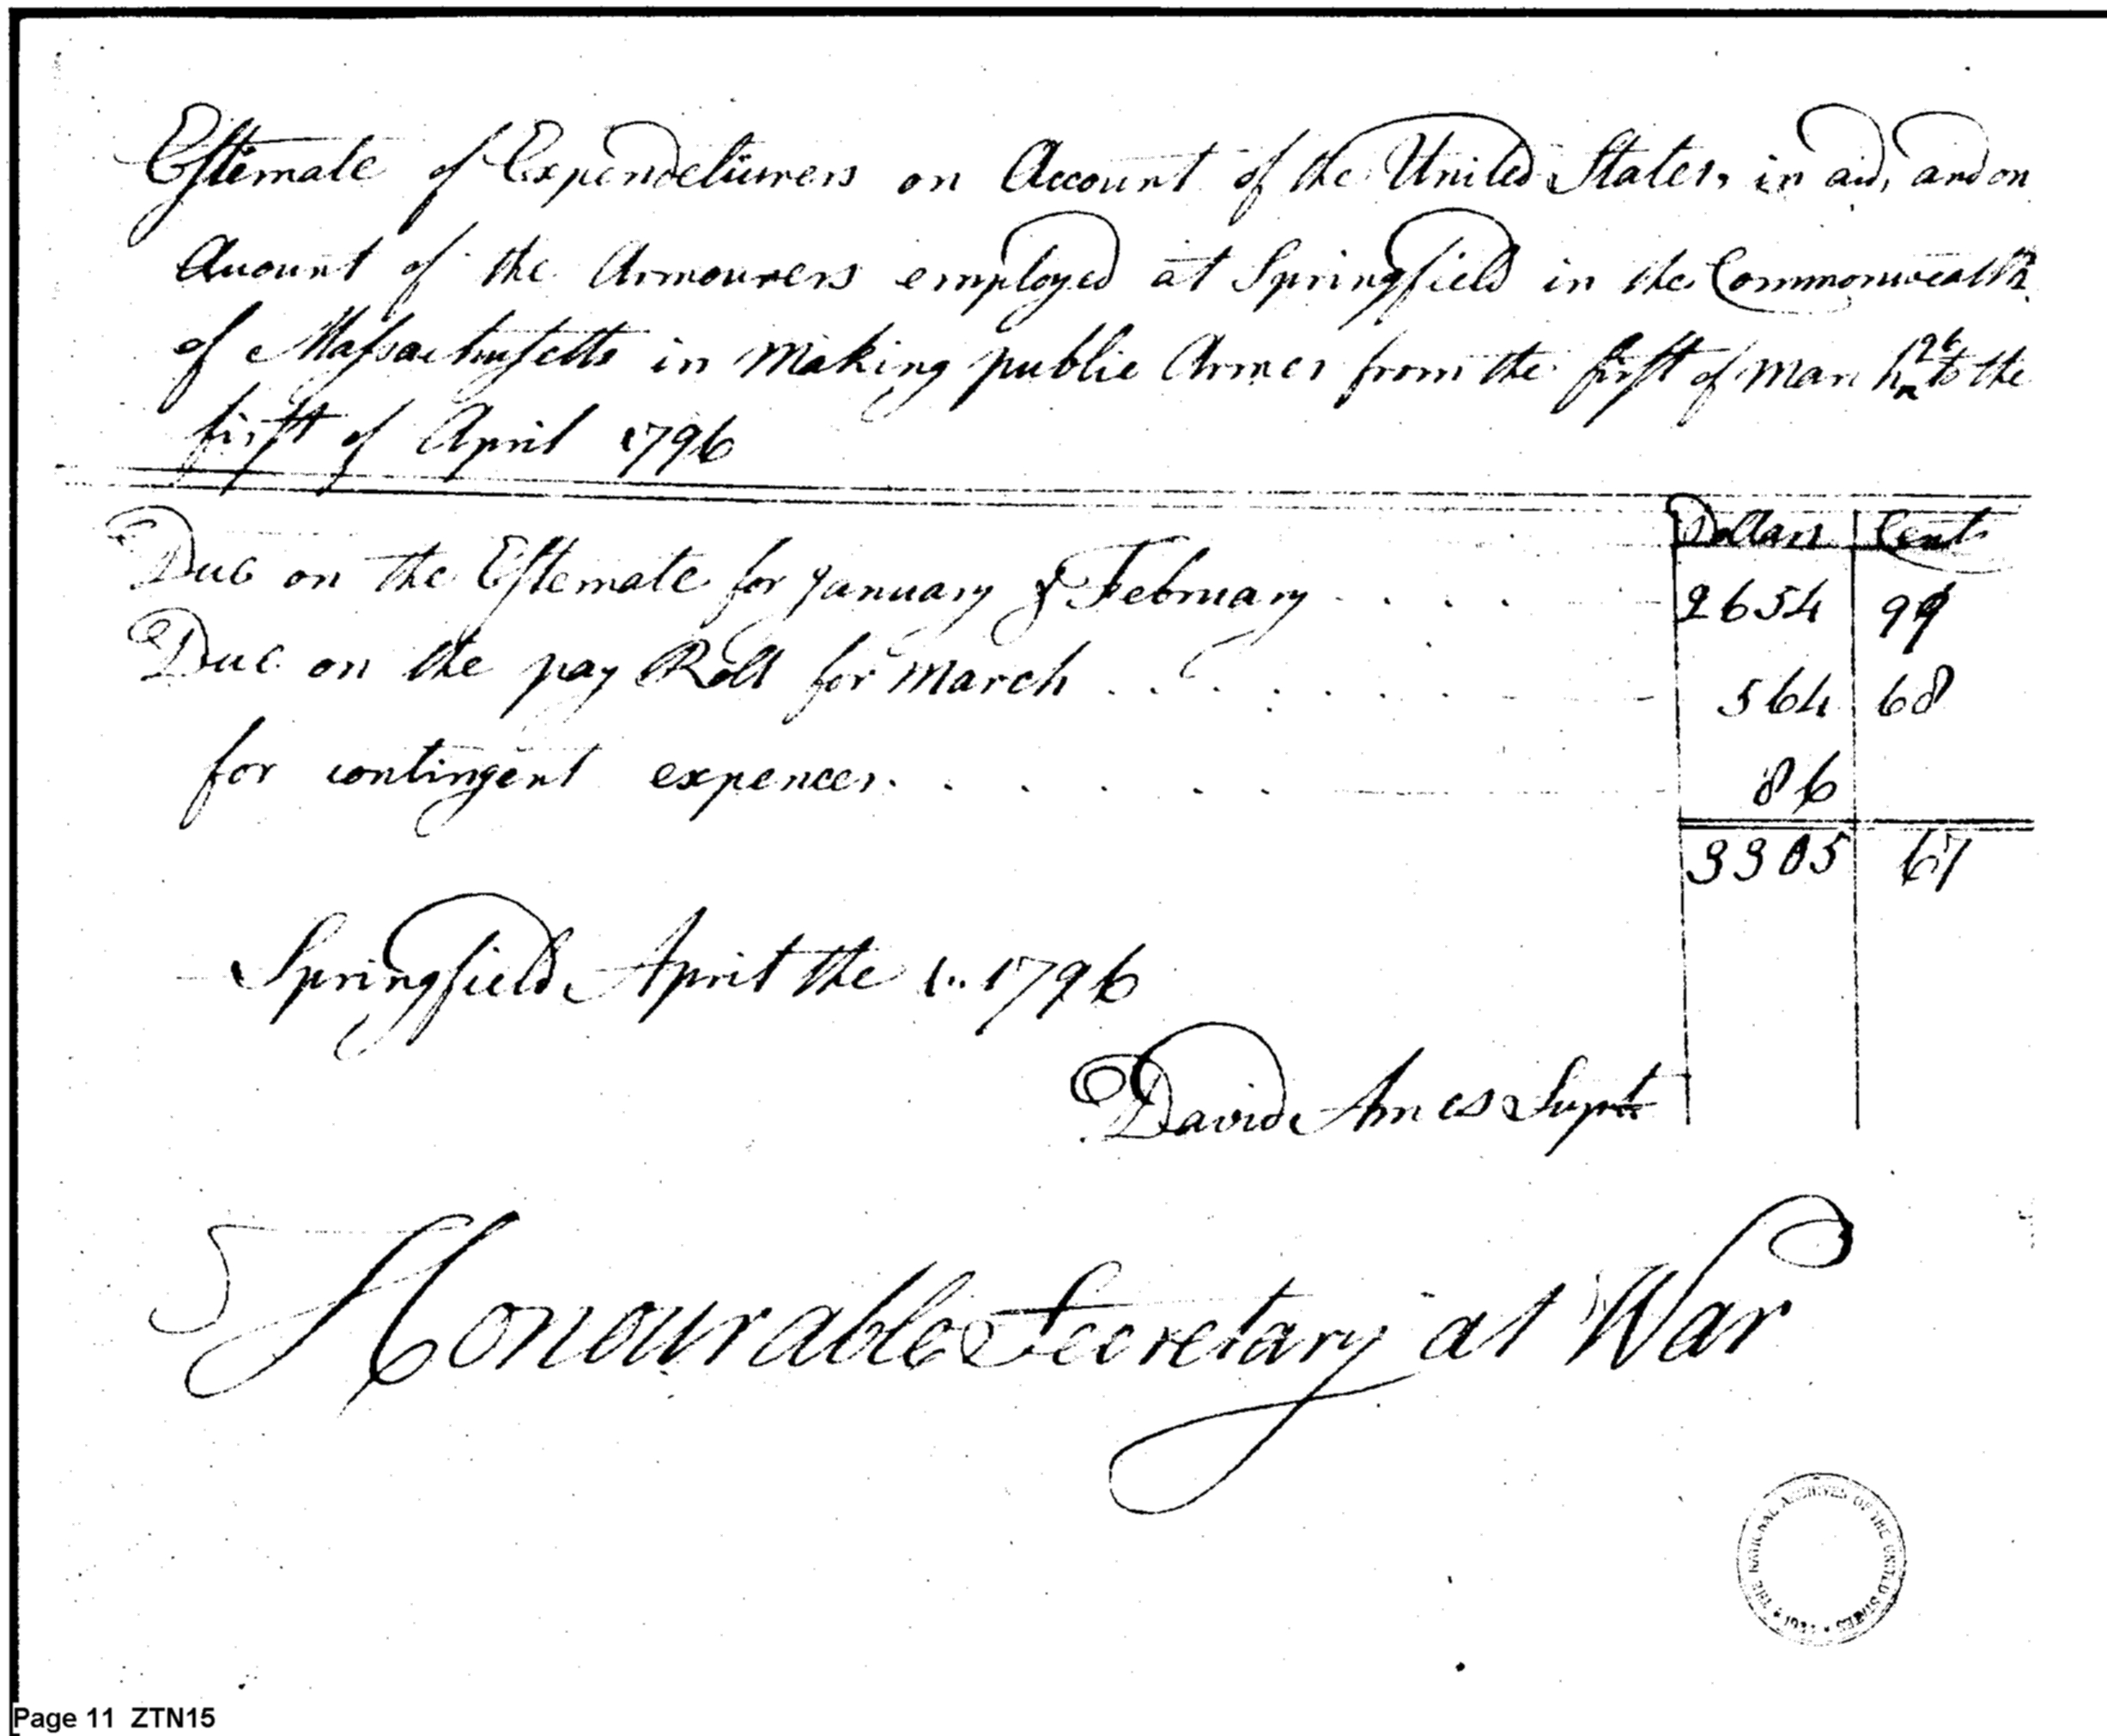 Estimate of Expendetiurers on Account of the United States, in aid, and on
Account of the Armourers employed at Springfield in the Commonwealth
of Massachusetts in making public Armes from the first of March 96 to the
first of April 1796
Dollars Cents
Due on the Estemate for January & February . . . . 2654 99
Due on the pay Roll for March . . . . . . . . 564 68
for contingent expences . . . . . . 86
3305 67
Springfield April the 1.. 1796
David Ames Supt
Honourable Secretary at War
THE NATIONAL ARCHIVES OF THE UNITED STATES
Page 11 ZTN15